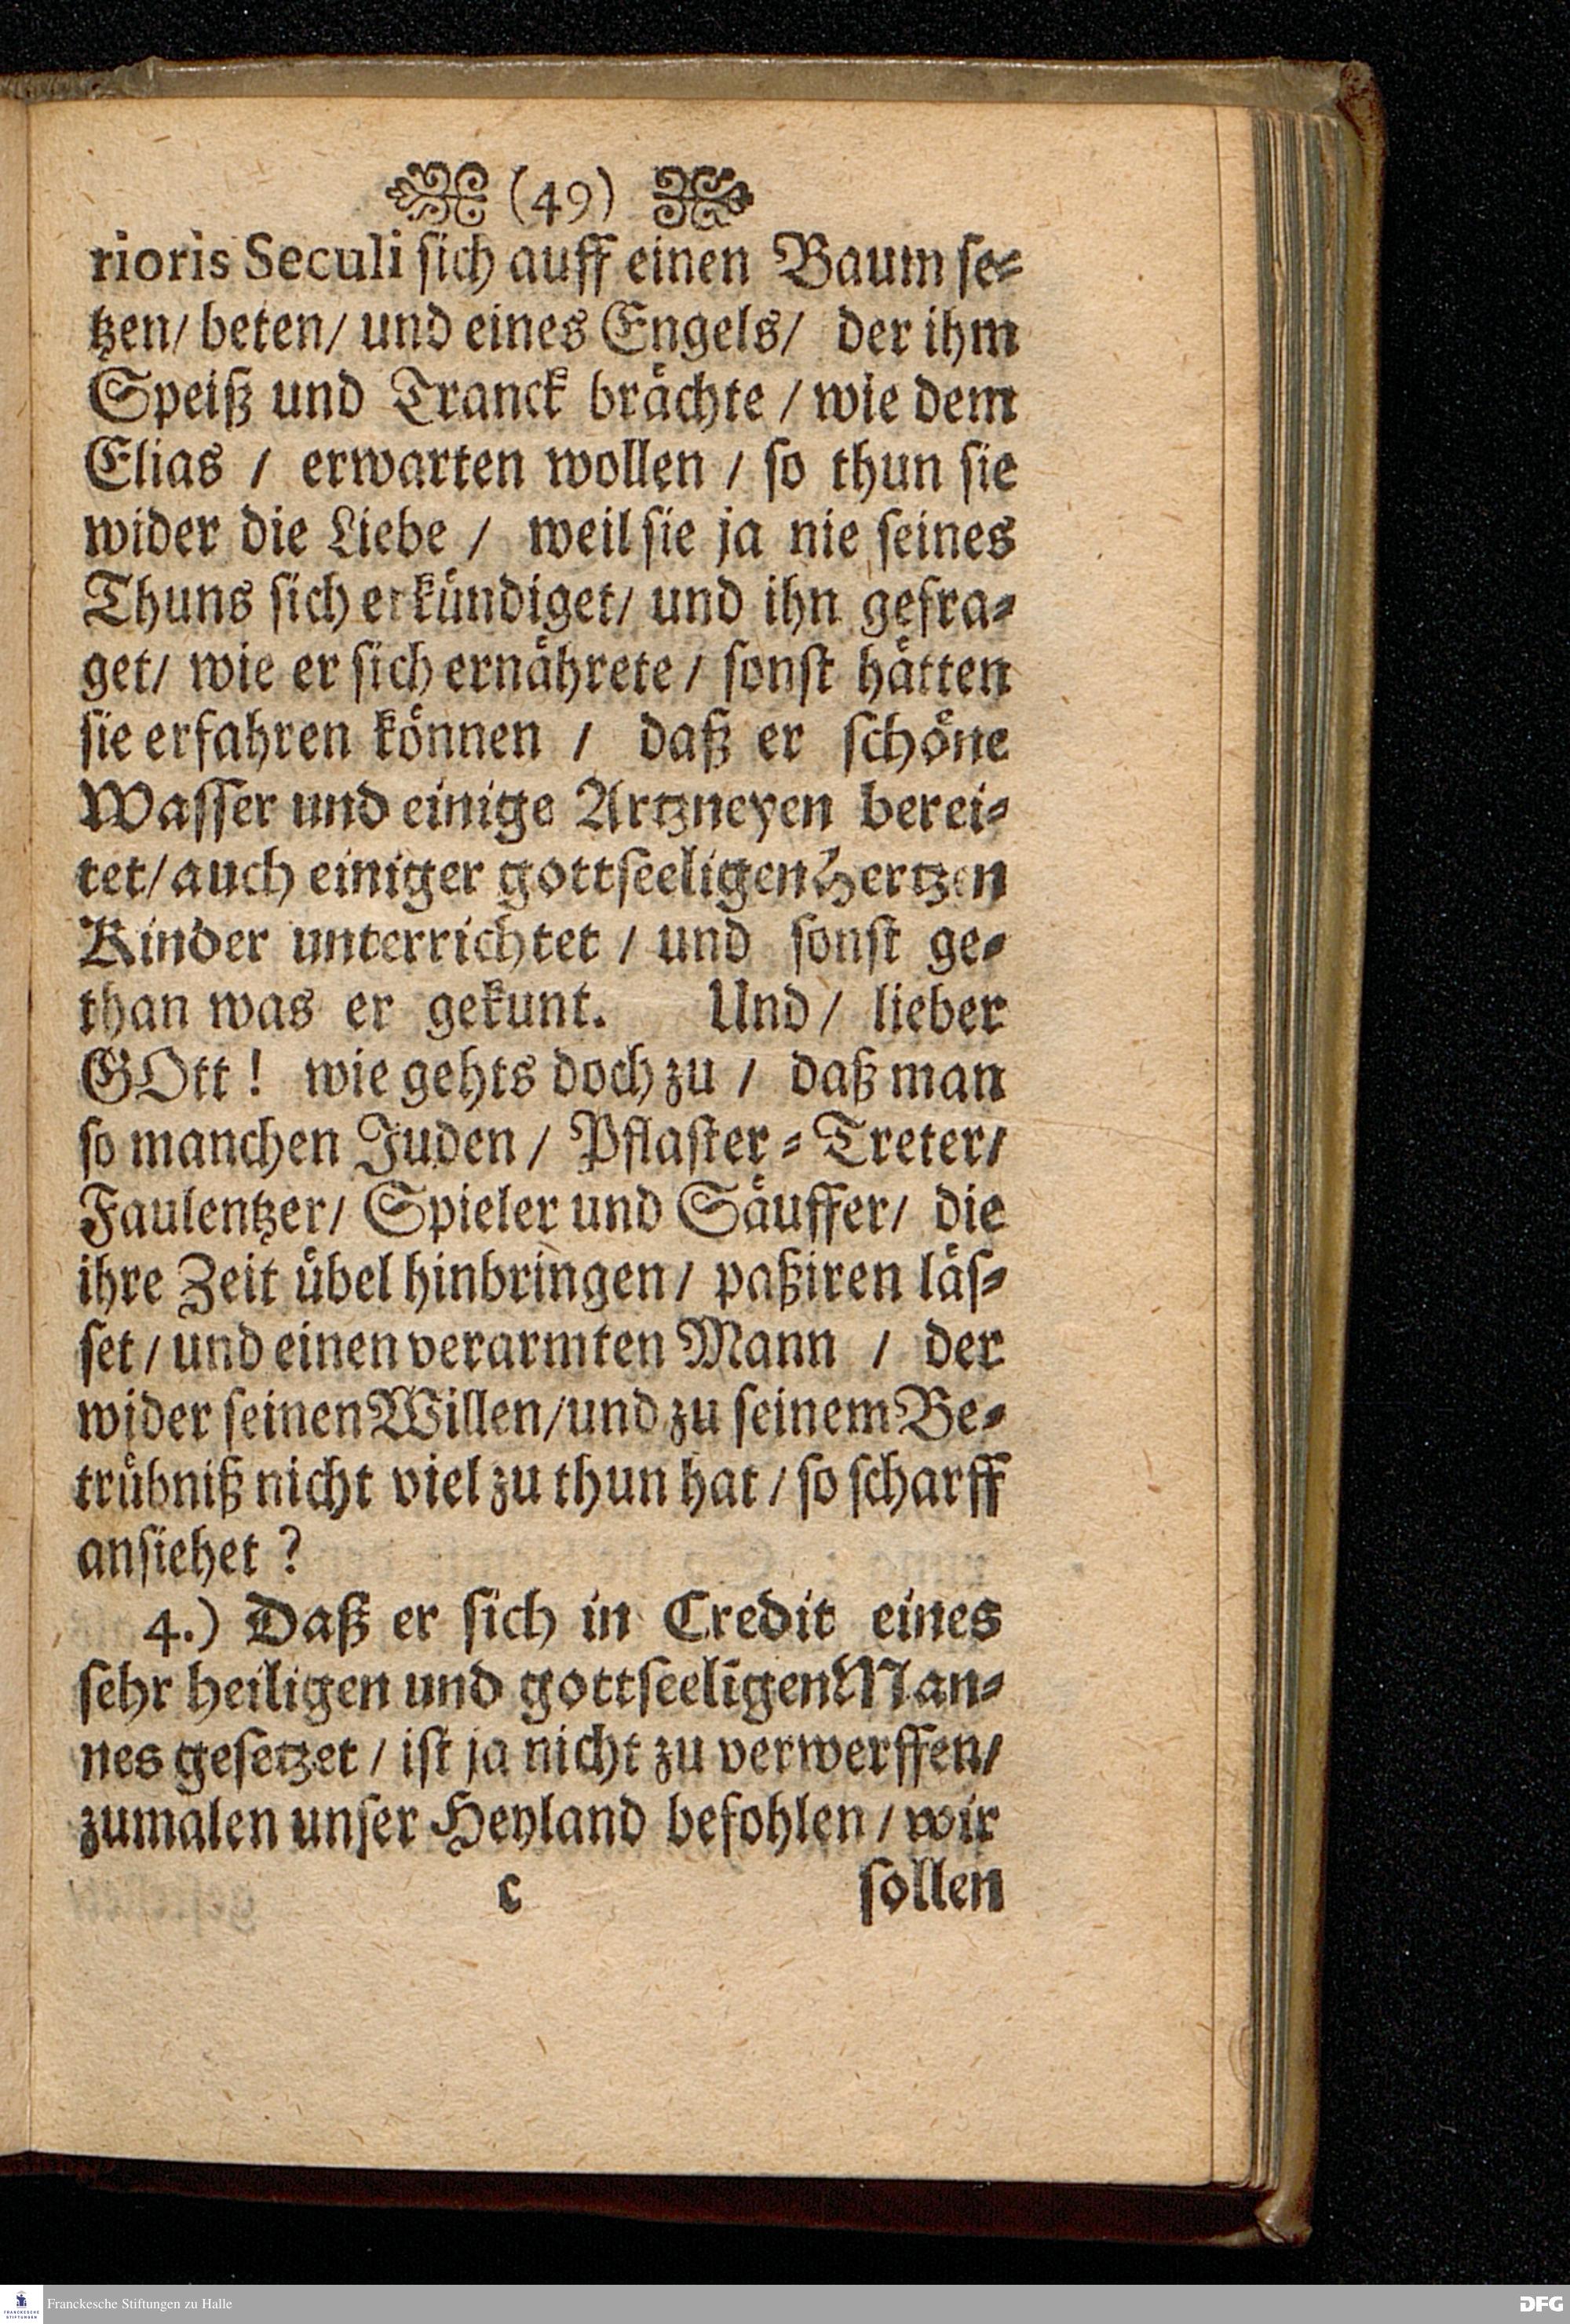 (49)
rioris Seculi sich auff einen Baum se⸗
tzen/ beten/ und eines Engels/ der ihm
Speiß und Tranck brächte / wie dem
Elias / erwarten wollen / so thun sie
wider die Liebe / weil sie ja nie seines
Thuns sich erkündiget/ und ihn gefra⸗
get/ wie er sich ernährete / sonst hätten
sie erfahren können / daß er schöne
Wasser und einige Artzneyen berei⸗
tet/ auch einiger gottseeligen Hertzen
Kinder unterrichtet / und sonst ge⸗
than was er gekunt. Und / lieber
GOtt! wie gehts doch zu / daß man
so manchen Juden / Pflaster⸗Treter/
Faulentzer/ Spieler und Säuffer/ die
ihre Zeit übel hinbringen / paßiren läs⸗
set / und einen verarmten Mann / der
wider seinen Willen/ und zu seinem Be⸗
trübniß nicht viel zu thun hat / so scharff
ansiehet?
4.) Daß er sich in Credit eines
sehr heiligen und gottseeligen Man⸗
nes gesetzet / ist ja nicht zu verwerffen/
zumalen unser Heyland befohlen / wir
c sollen
FRANCKESCHE STIFTUNGEN
Franckesche Stiftungen zu Halle
DFG